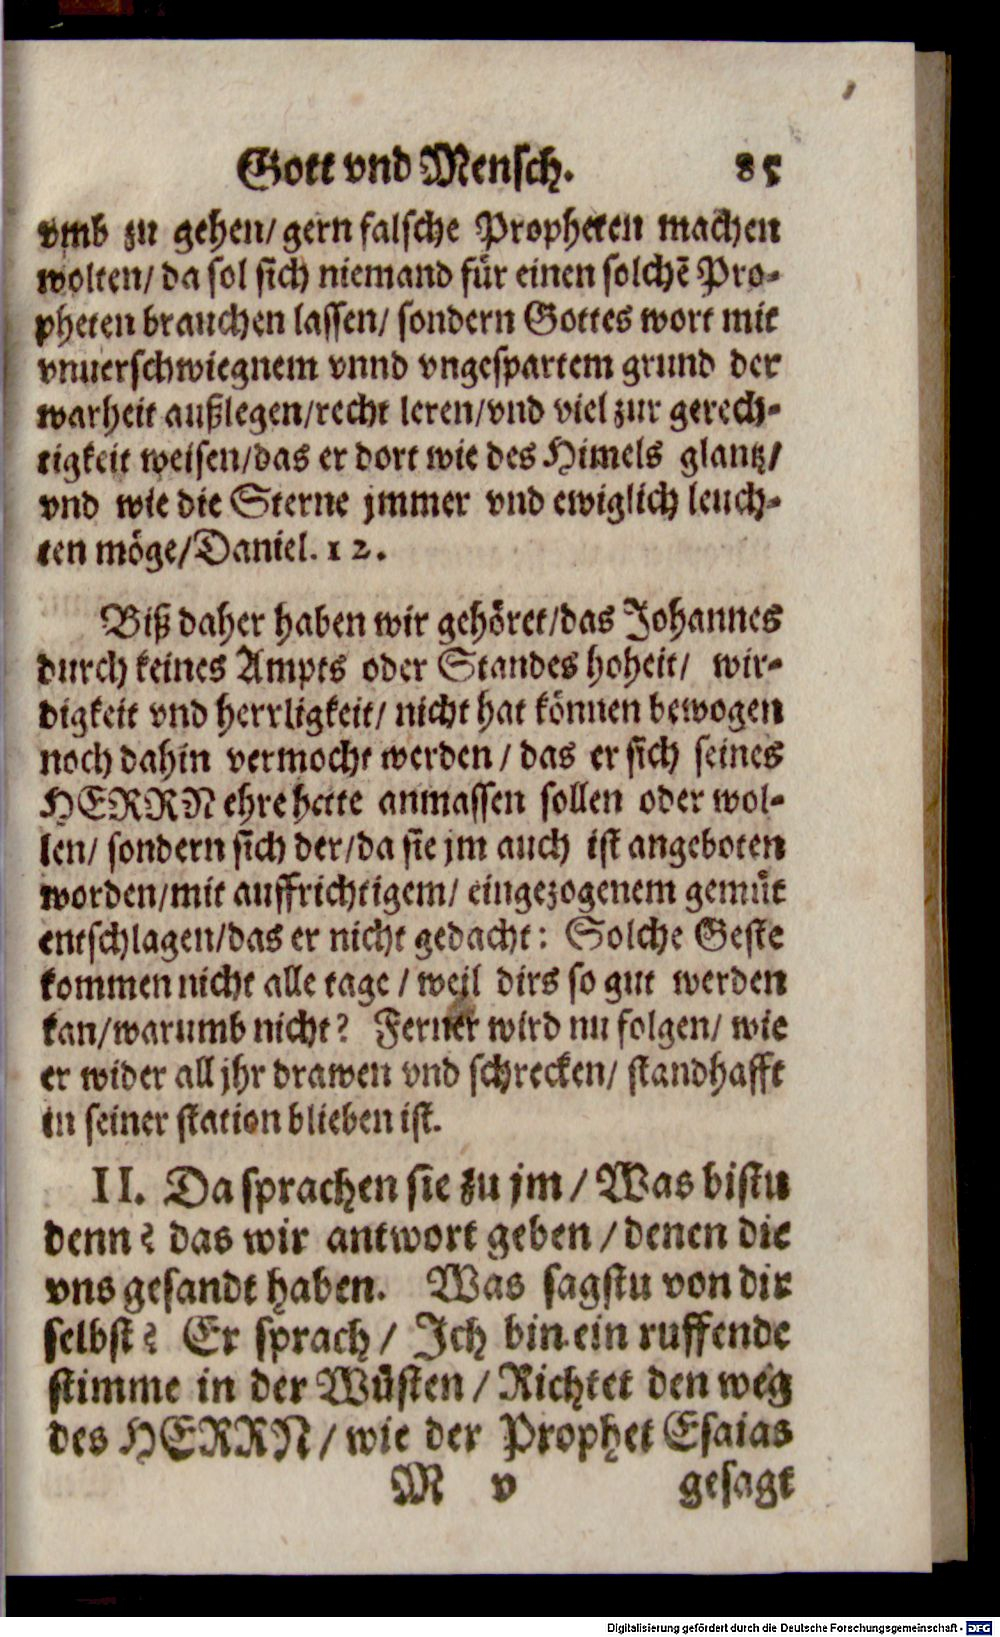 Gott vnd Mensch. 85
vmb zu gehen/ gern falsche Propheten machen
wolten/ da sol sich niemand für einen solchē Pro-
pheten brauchen lassen/ sondern Gottes wort mit
vnuerschwiegnem vnnd vngespartem grund der
warheit außlegen/recht leren/vnd viel zur gerech-
tigkeit weisen/das er dort wie des Himels glantz/
vnd wie die Sterne jmmer vnd ewiglich leuch-
ten möge/Daniel. 12.
Biß daher haben wir gehöret/das Johannes
durch keines Ampts oder Standes hoheit/ wir-
digkeit vnd herrligkeit/ nicht hat können bewogen
noch dahin vermocht werden/ das er sich seines
HERRN ehre hette anmassen sollen oder wol-
len/ sondern sich der/da sie jm auch ist angeboten
worden/mit auffrichtigem/ eingezogenem gemüt
entschlagen/das er nicht gedacht: Solche Geste
kommen nicht alle tage/ weil dirs so gut werden
kan/warumb nicht? Ferner wird nu folgen/ wie
er wider all jhr drawen vnd schrecken/ standhafft
in seiner station blieben ist.
II. Da sprachen sie zu jm/ Was bistu
denn? das wir antwort geben/ denen die
vns gesandt haben. Was sagstu von dir
selbst? Er sprach/ Jch bin ein ruffende
stimme in der Wüsten/ Richtet den weg
des HERRN/ wie der Prophet Esaias
M v gesagt
Digitalisierung gefördert durch die Deutsche Forschungsgemeinschaft - DFG